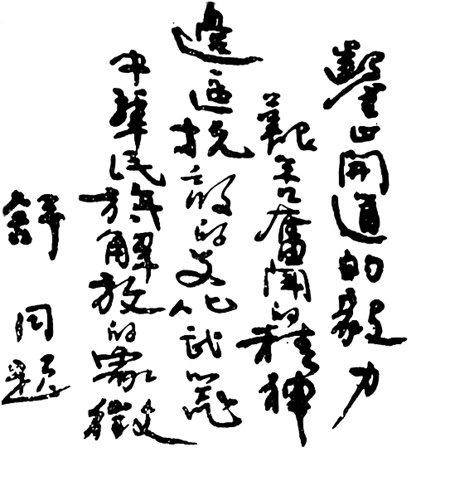 鑿山開道的毅力
艱苦奮鬥的精神
邊區抗敵的文化武器
中華民族解放的象徵
舒同題